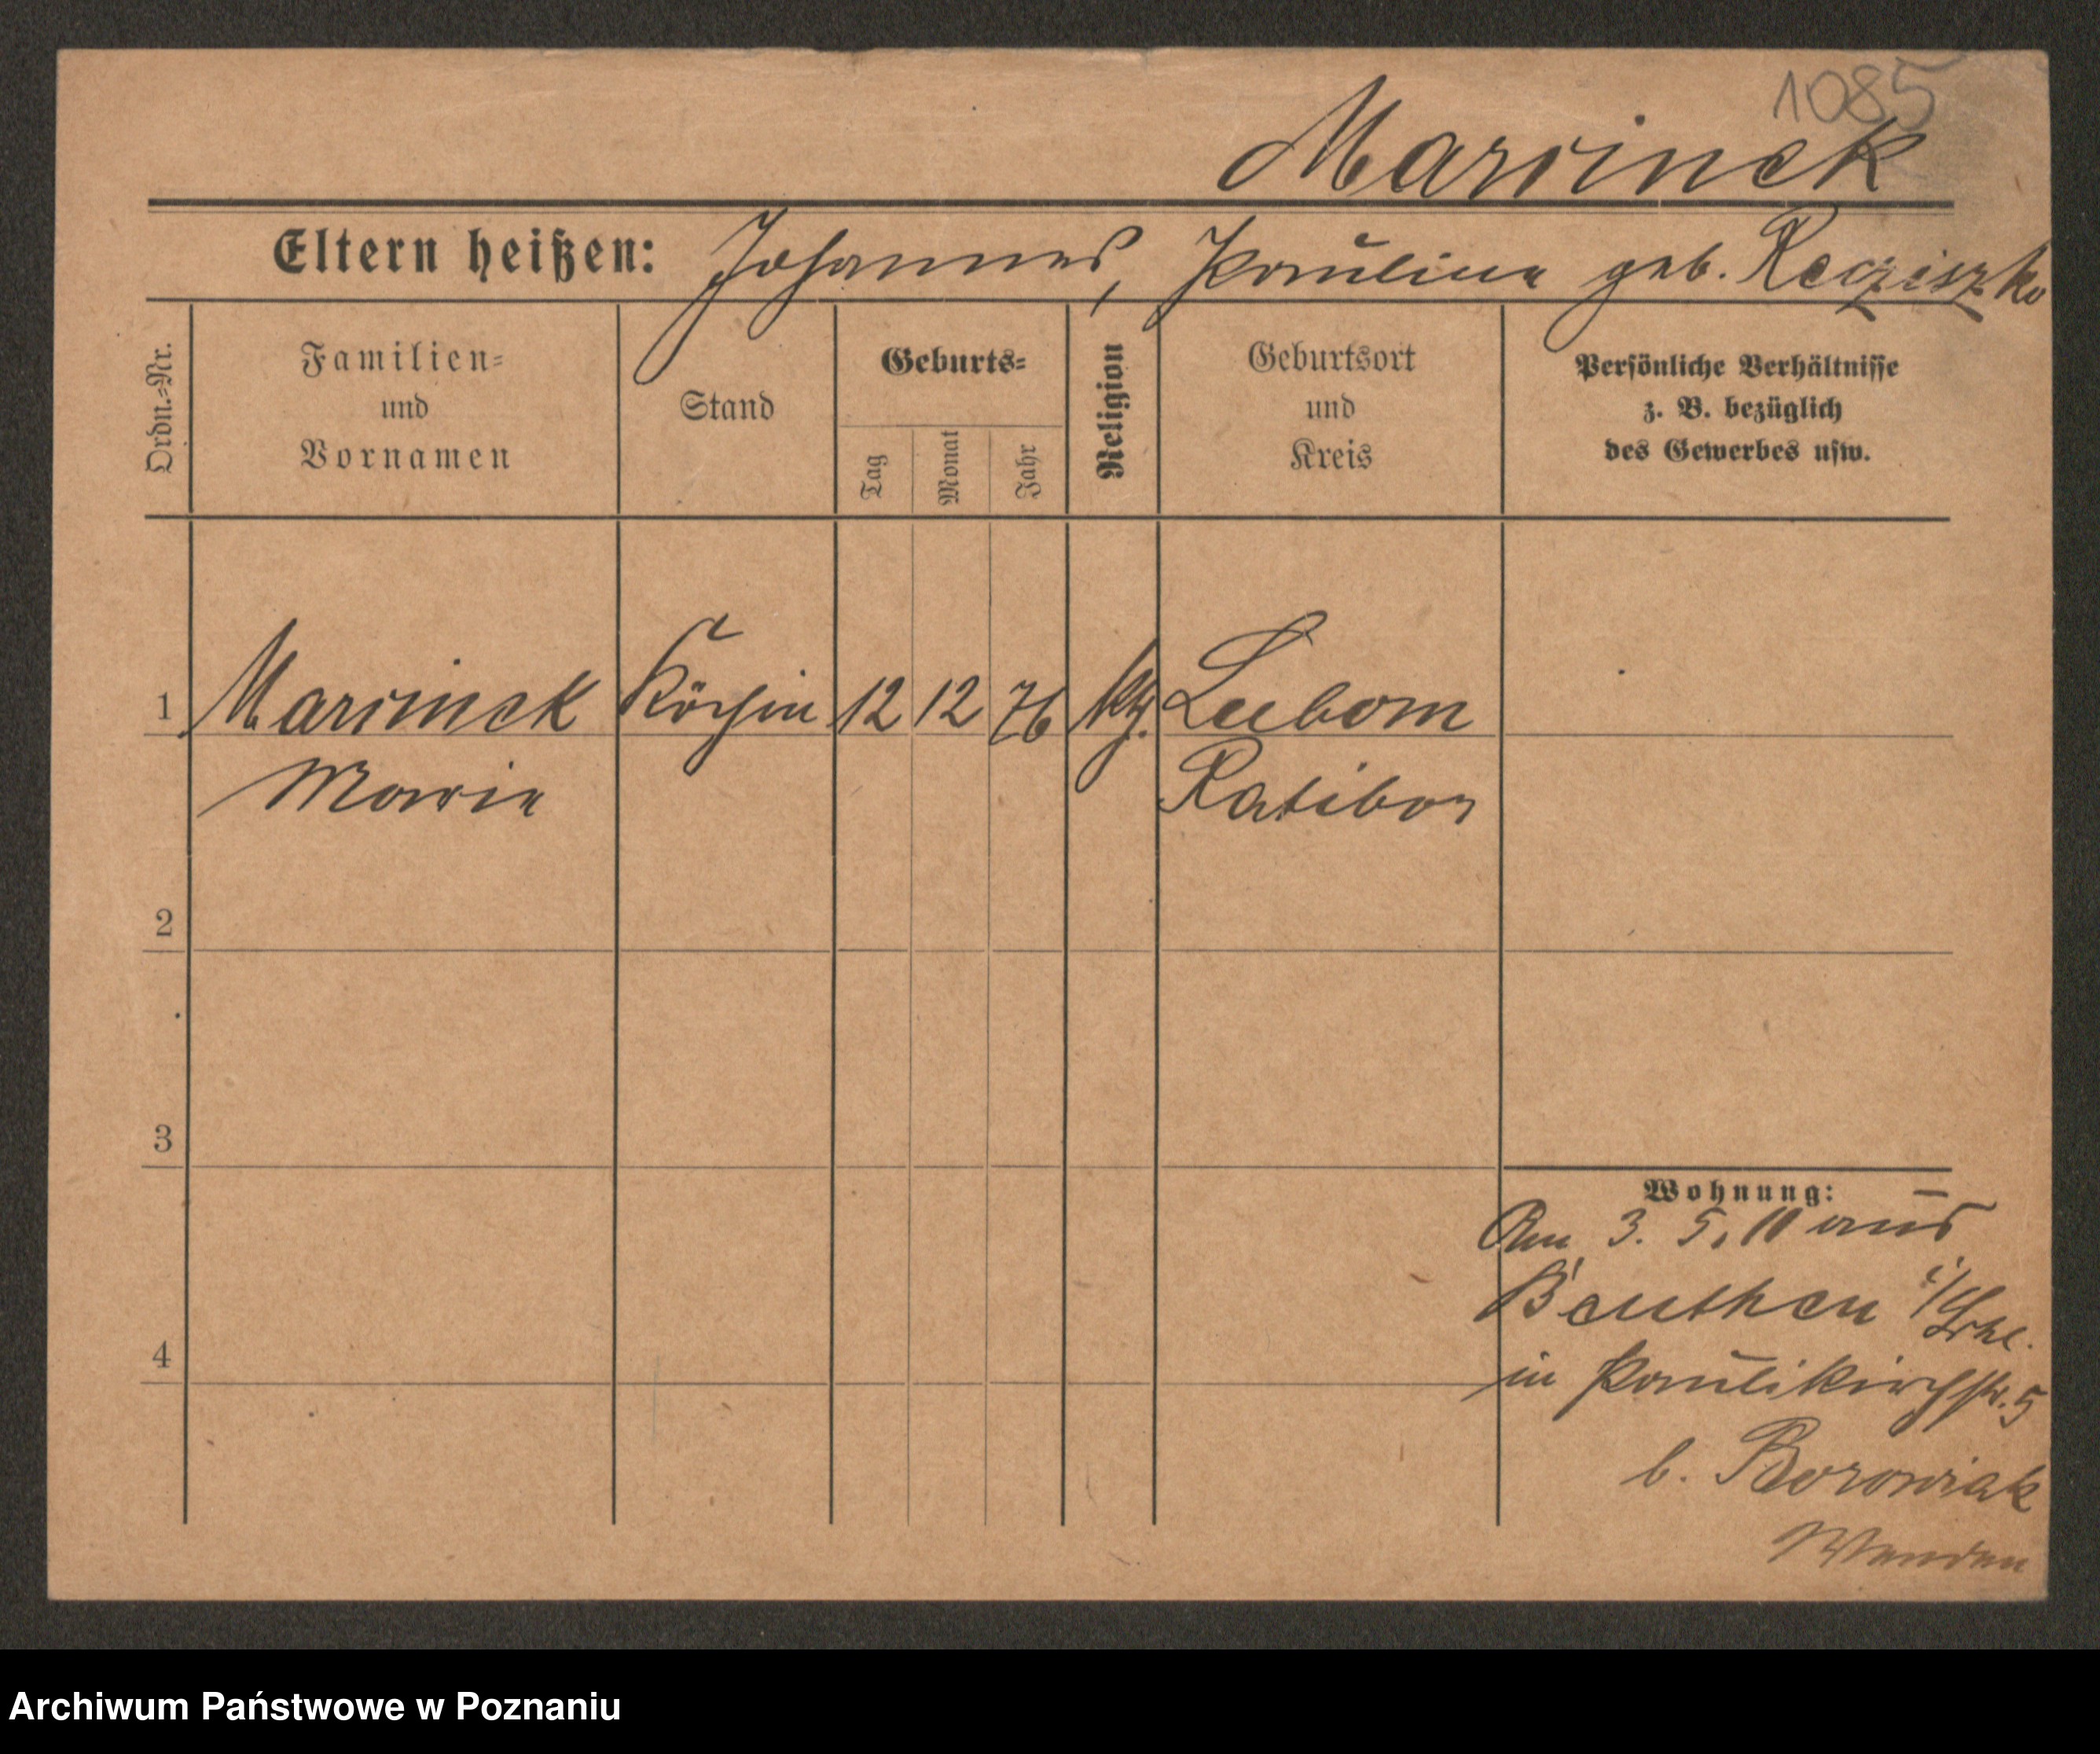 1085
Marvinek
Eltern heißen: Johannes, Pauline geb. Recziszko
Ordn.=Nr.
Familien=
und
Vornamen
Stand
Geburts=
Tag
Monat
Jahr
Religion
Geburtsort
und
Kreis
Persönliche Verhältnisse
z. B. bezüglich
des Gewerbes usw.
1 Marvinek Köchin 12 12 76 kth. Lubom
Marie Ratibor
2
3
4
Wohnung:
Am 3. 5. 10 aus
Beuthen i/Schl.
in Paulikirchstr. 5
b. Borowiak
Wenden
Archiwum Państwowe w Poznaniu